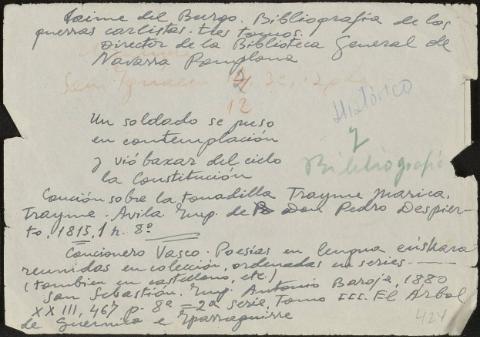 Jaime del Burgo. Bibliografía de las
guerras carlistas. tres tomos.
Director de la Biblioteca General de
Navarra Pamplona
12
Histórico
y
Bibliografía
Un soldado se puso
en contemplación
y vió baxar del cielo
la Constitución
Canción sobre la tonadilla Trayme Marica,
Trayme. Avila Imp. de Don Pedro Despier-
to, 1815, 1 h. 8º
Cancionero Vasco. Poesías en lengua euskara
reunidas en colección, ordenadas en series
(tambien en castellano, etc)
San Sebastián Imp. Antonio Baroja, 1880
XXIII, 467 p. 8ª = 2ª serie, Tomo III. El Arbol
de Guernica e Iparraguirre
424